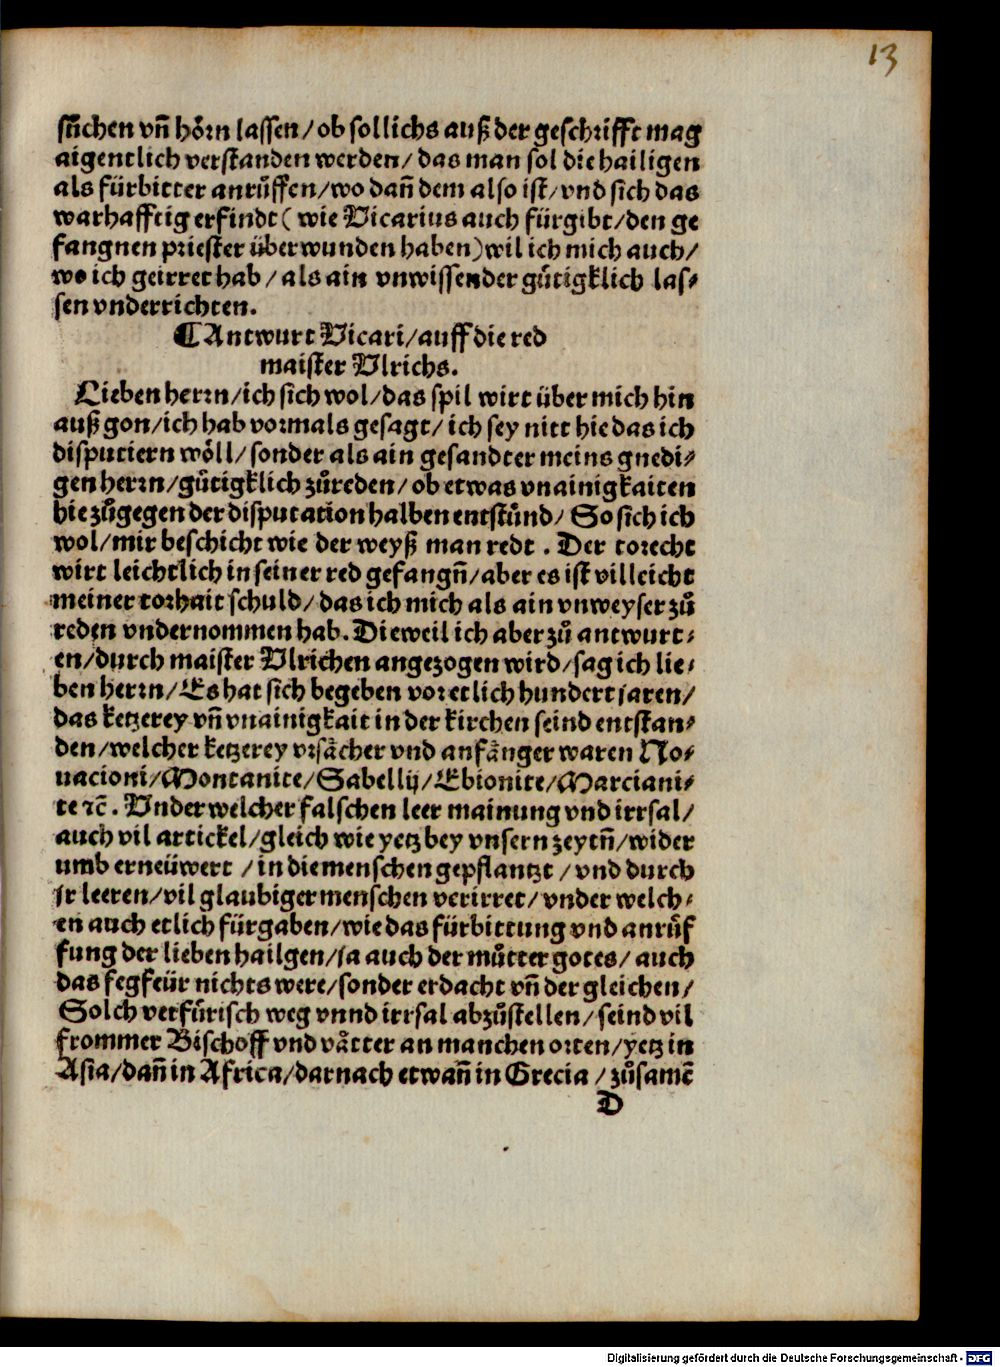 13
sůchen vñ hoͤrn lassen/ob sollichs auß der geschrifft mag
aigentlich verstanden werden/das man sol die hailigen
als fürbitter anruͤffen/wo dañ dem also ist/vnd sich das
warhafftig erfindt( wie Vicarius auch fürgibt/den ge
fangnen priester überwunden haben)wil ich mich auch/
wo ich geirret hab/als ain vnwissender guͤtigklich las⸗
sen vnderrichten.
¶Antwurt Vicari/auff die red
maister Vlrichs.
Lieben herrn/ich sich wol/das spil wirt über mich hin
auß gon/ich hab vormals gesagt/ich sey nitt hie das ich
disputiern woͤll/sonder als ain gesandter meins gnedi⸗
gen herrn/guͤtigklich zůreden/ob etwas vnainigkaiten
hie zůgegen der disputation halben entstuͤnd/So sich ich
wol/mir beschicht wie der weyß man redt. Der torecht
wirt leichtlich in seiner red gefangñ/aber es ist villeicht
meiner torhait schuld/das ich mich als ain vnweyser zů
reden vndernommen hab. Dieweil ich aber zů antwurt⸗
en/durch maister Vlrichen angezogen wird/sag ich lie⸗
ben herrn/Es hat sich begeben vor etlich hundert jaren/
das ketzerey vñ vnainigkait in der kirchen seind entstan⸗
den/welcher ketzerey vrsaͤcher vnd anfaͤnger waren No⸗
uacioni/Montanite/Sabellij/Ebionite/Marciani⸗
te ꝛc̄. Vnder welcher falschen leer mainung vnd irrsal/
auch vil artickel/gleich wie yetz bey vnsern zeytñ/wider
umb erneüwert /in die menschen gepflantzt /vnd durch
jr leeren/vil glaubiger menschen verirret/vnder welch⸗
en auch etlich fürgaben/wie das fürbittung vnd anruͤf
fung der lieben hailgen/ja auch der můtter gotes/auch
das fegfeür nichts were/sonder erdacht vñ der gleichen/
Solch verfuͤrisch weg vnnd irrsal abzůstellen/seind vil
frommer Bischoff vnd vaͤtter an manchen orten/yetz in
Asia/dañ in Africa/darnach etwañ in Grecia /zůsamē
D
Digitalisierung gefördert durch die Deutsche Forschungsgemeinschaft - DFG